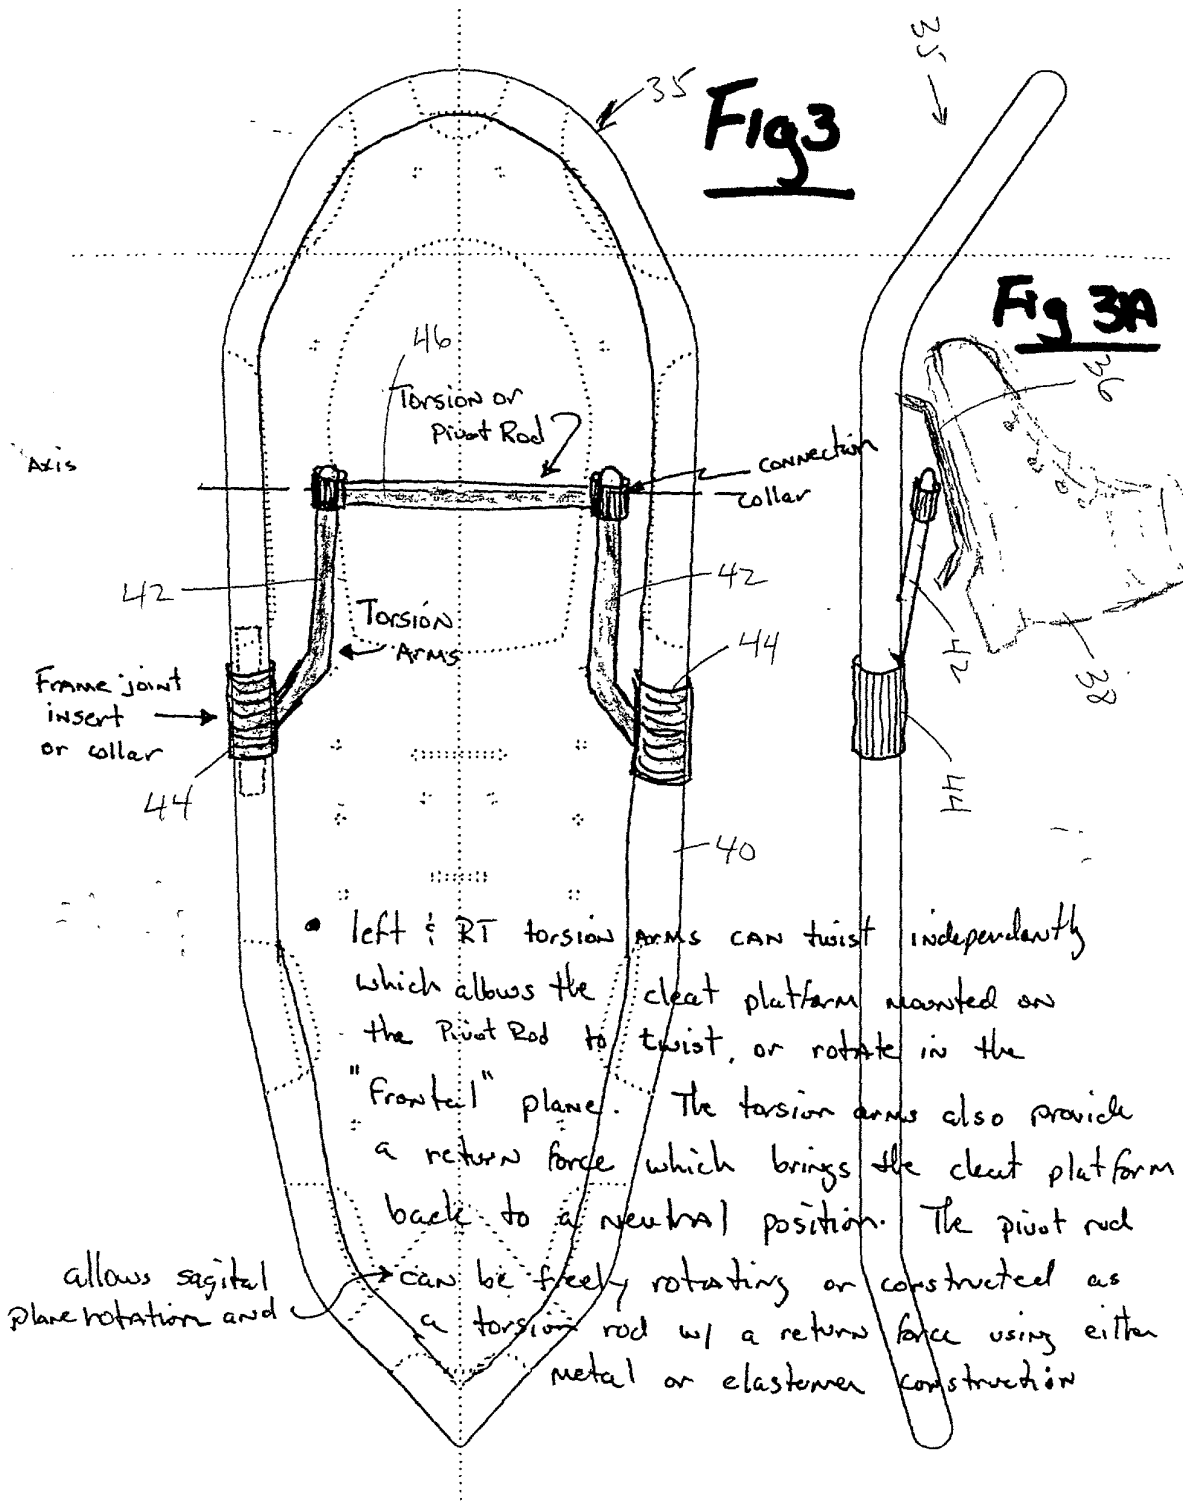 35
35
Fig3
Fig 3A
36
46
Torsion or
Pivot Rod
Axis
connection
collar
42
42
Torsion
Arms
44
42
38
Frame joint
insert
or collar
44
44
40
• left & RT torsion Arms CAN twist independantly
which allows the cleat platform mounted on
the Pivot Rod to twist, or rotate in the
"Frontal" plane. The torsion arms also provide
a return force which brings the cleat platform
back to a neutral position. The pivot rod
allows sagital
plane rotation and
can be freely rotating or constructed as
a torsion rod w/ a return force using either
metal or elastomer construction